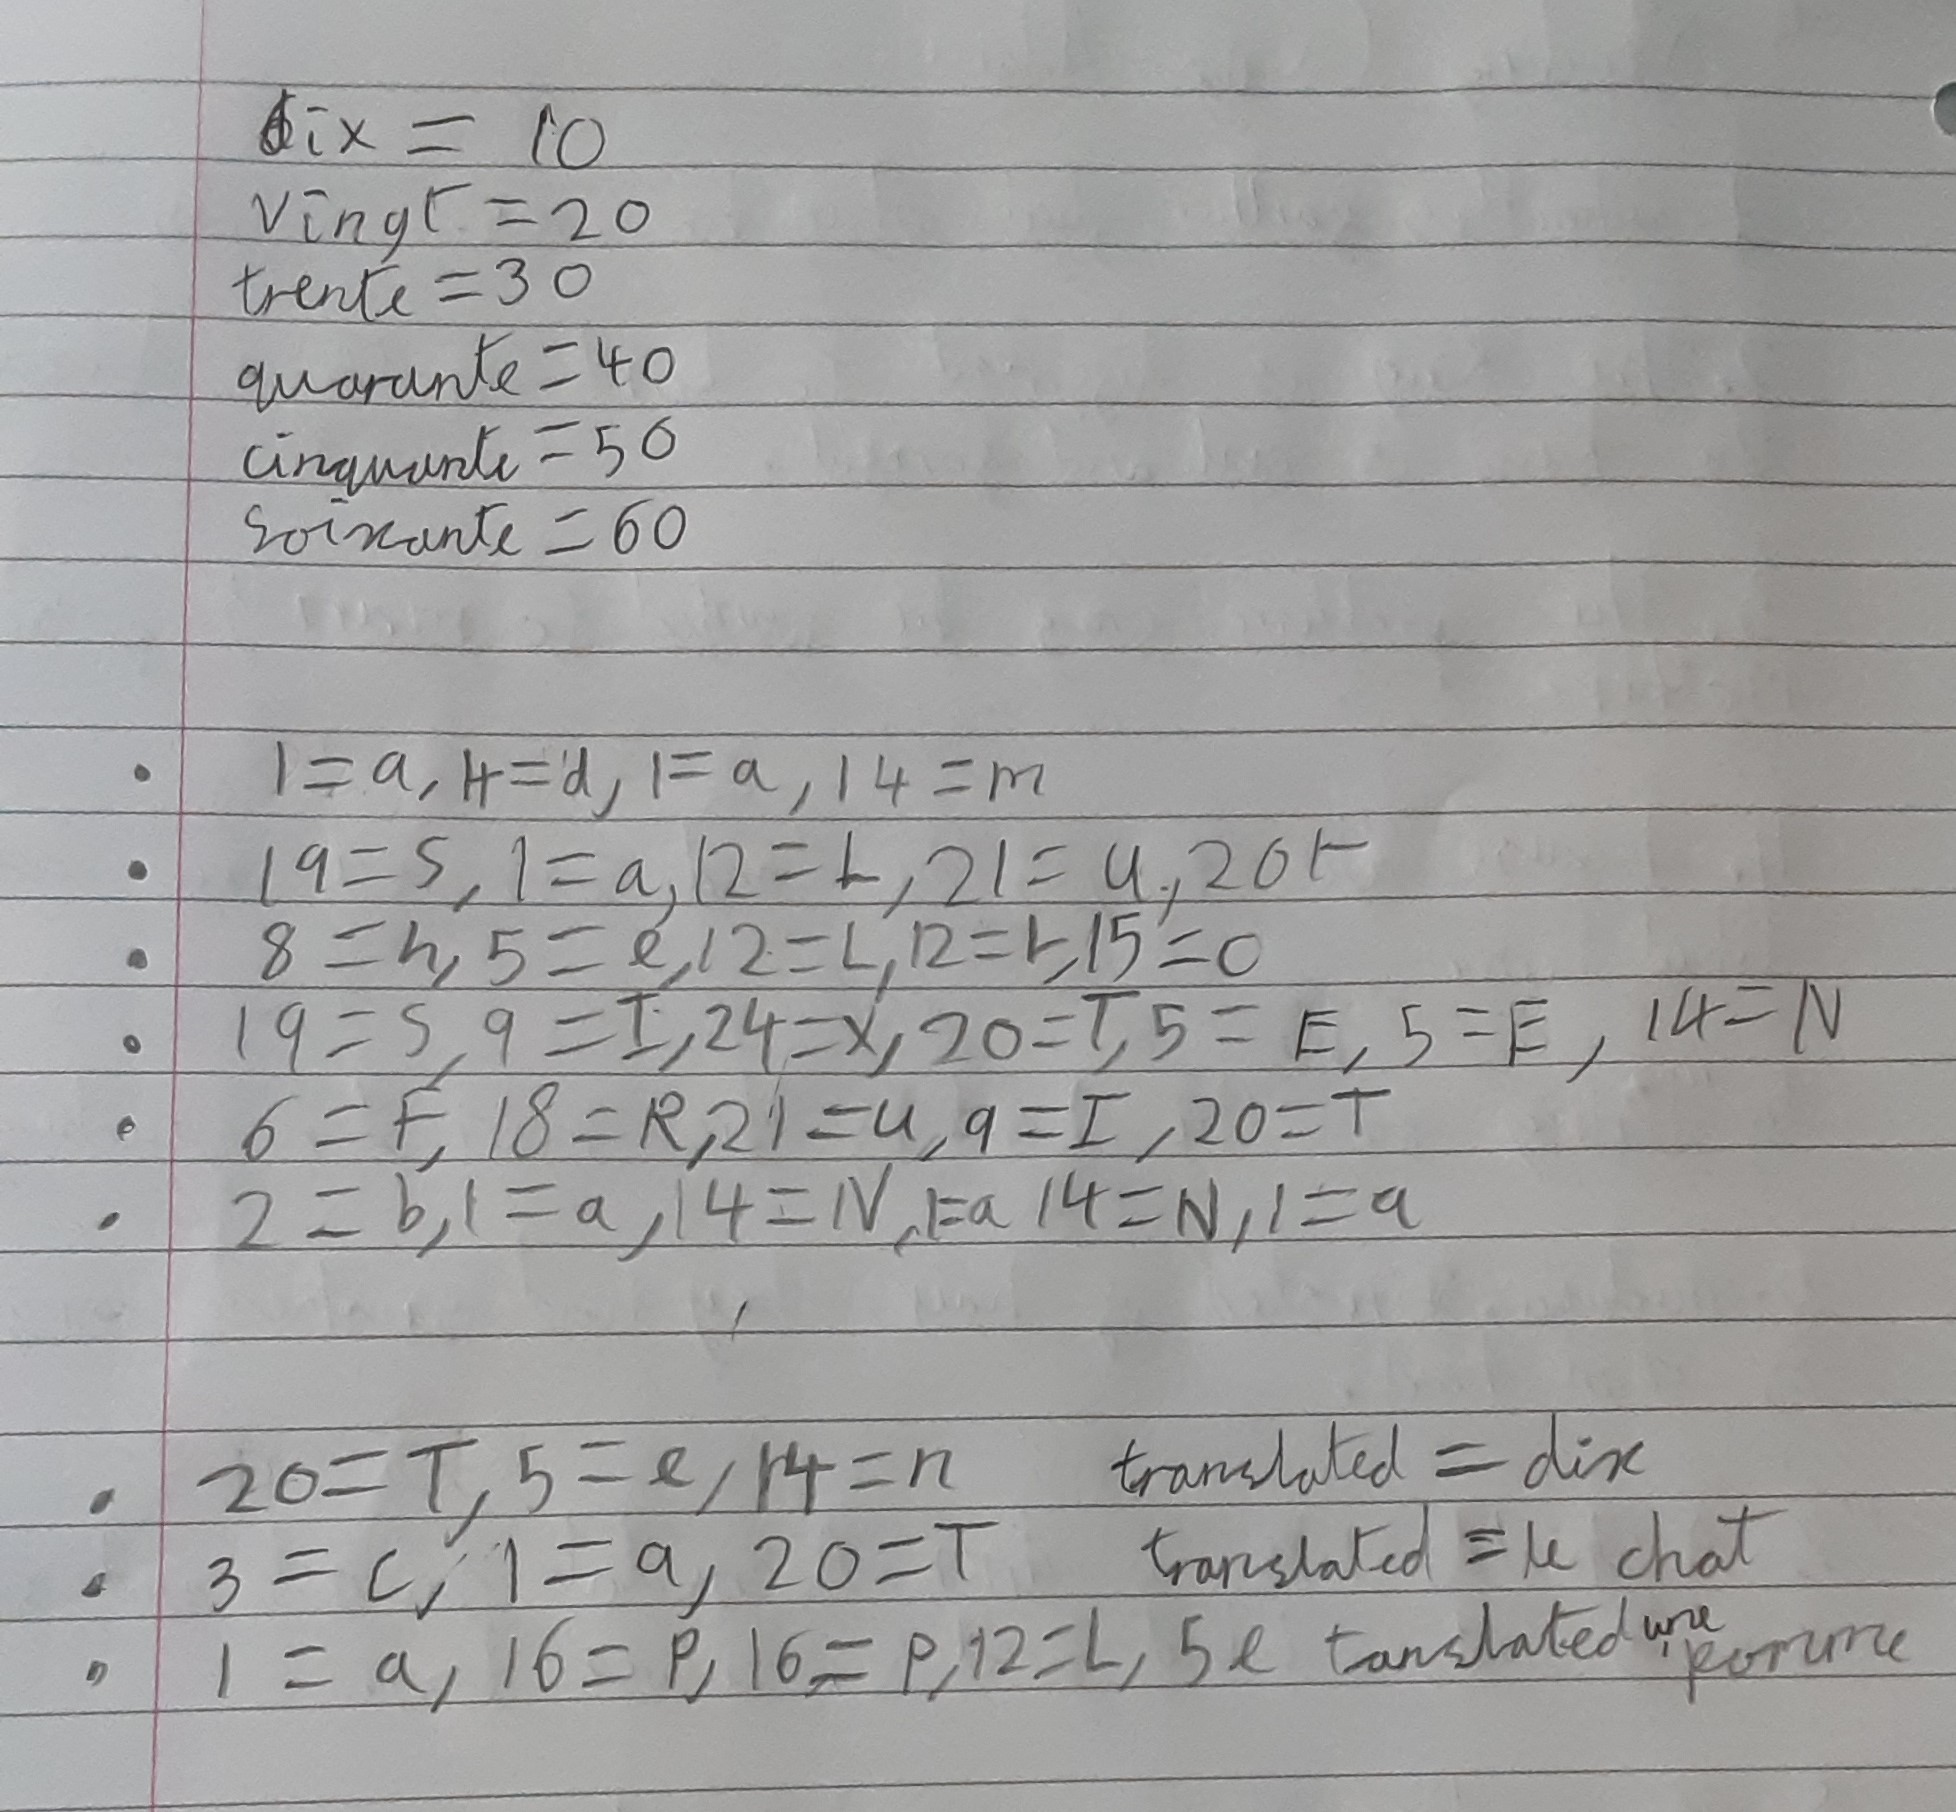 dix = 10
vingt = 20
trente = 30
quarante = 40
cinquante = 50
soixante = 60
• 1=a, 4=d, 1=a, 14=m
• 19=S, 1=a, 12=L, 21=u, 20t
• 8=h, 5=e, 12=L, 12=L, 15=o
• 19=S, 9=I, 24=x, 20=T, 5=E, 5=E, 14=N
• 6=F, 18=R, 21=u, 9=I, 20=T
• 2=b, 1=a, 14=N, 1=a 14=N, 1=a
• 20=T, 5=e, 14=n translated = dix
• 3=c, 1=a, 20=T translated = le chat
• 1=a, 16=P, 16=P, 12=L, 5e tanslated une pomme